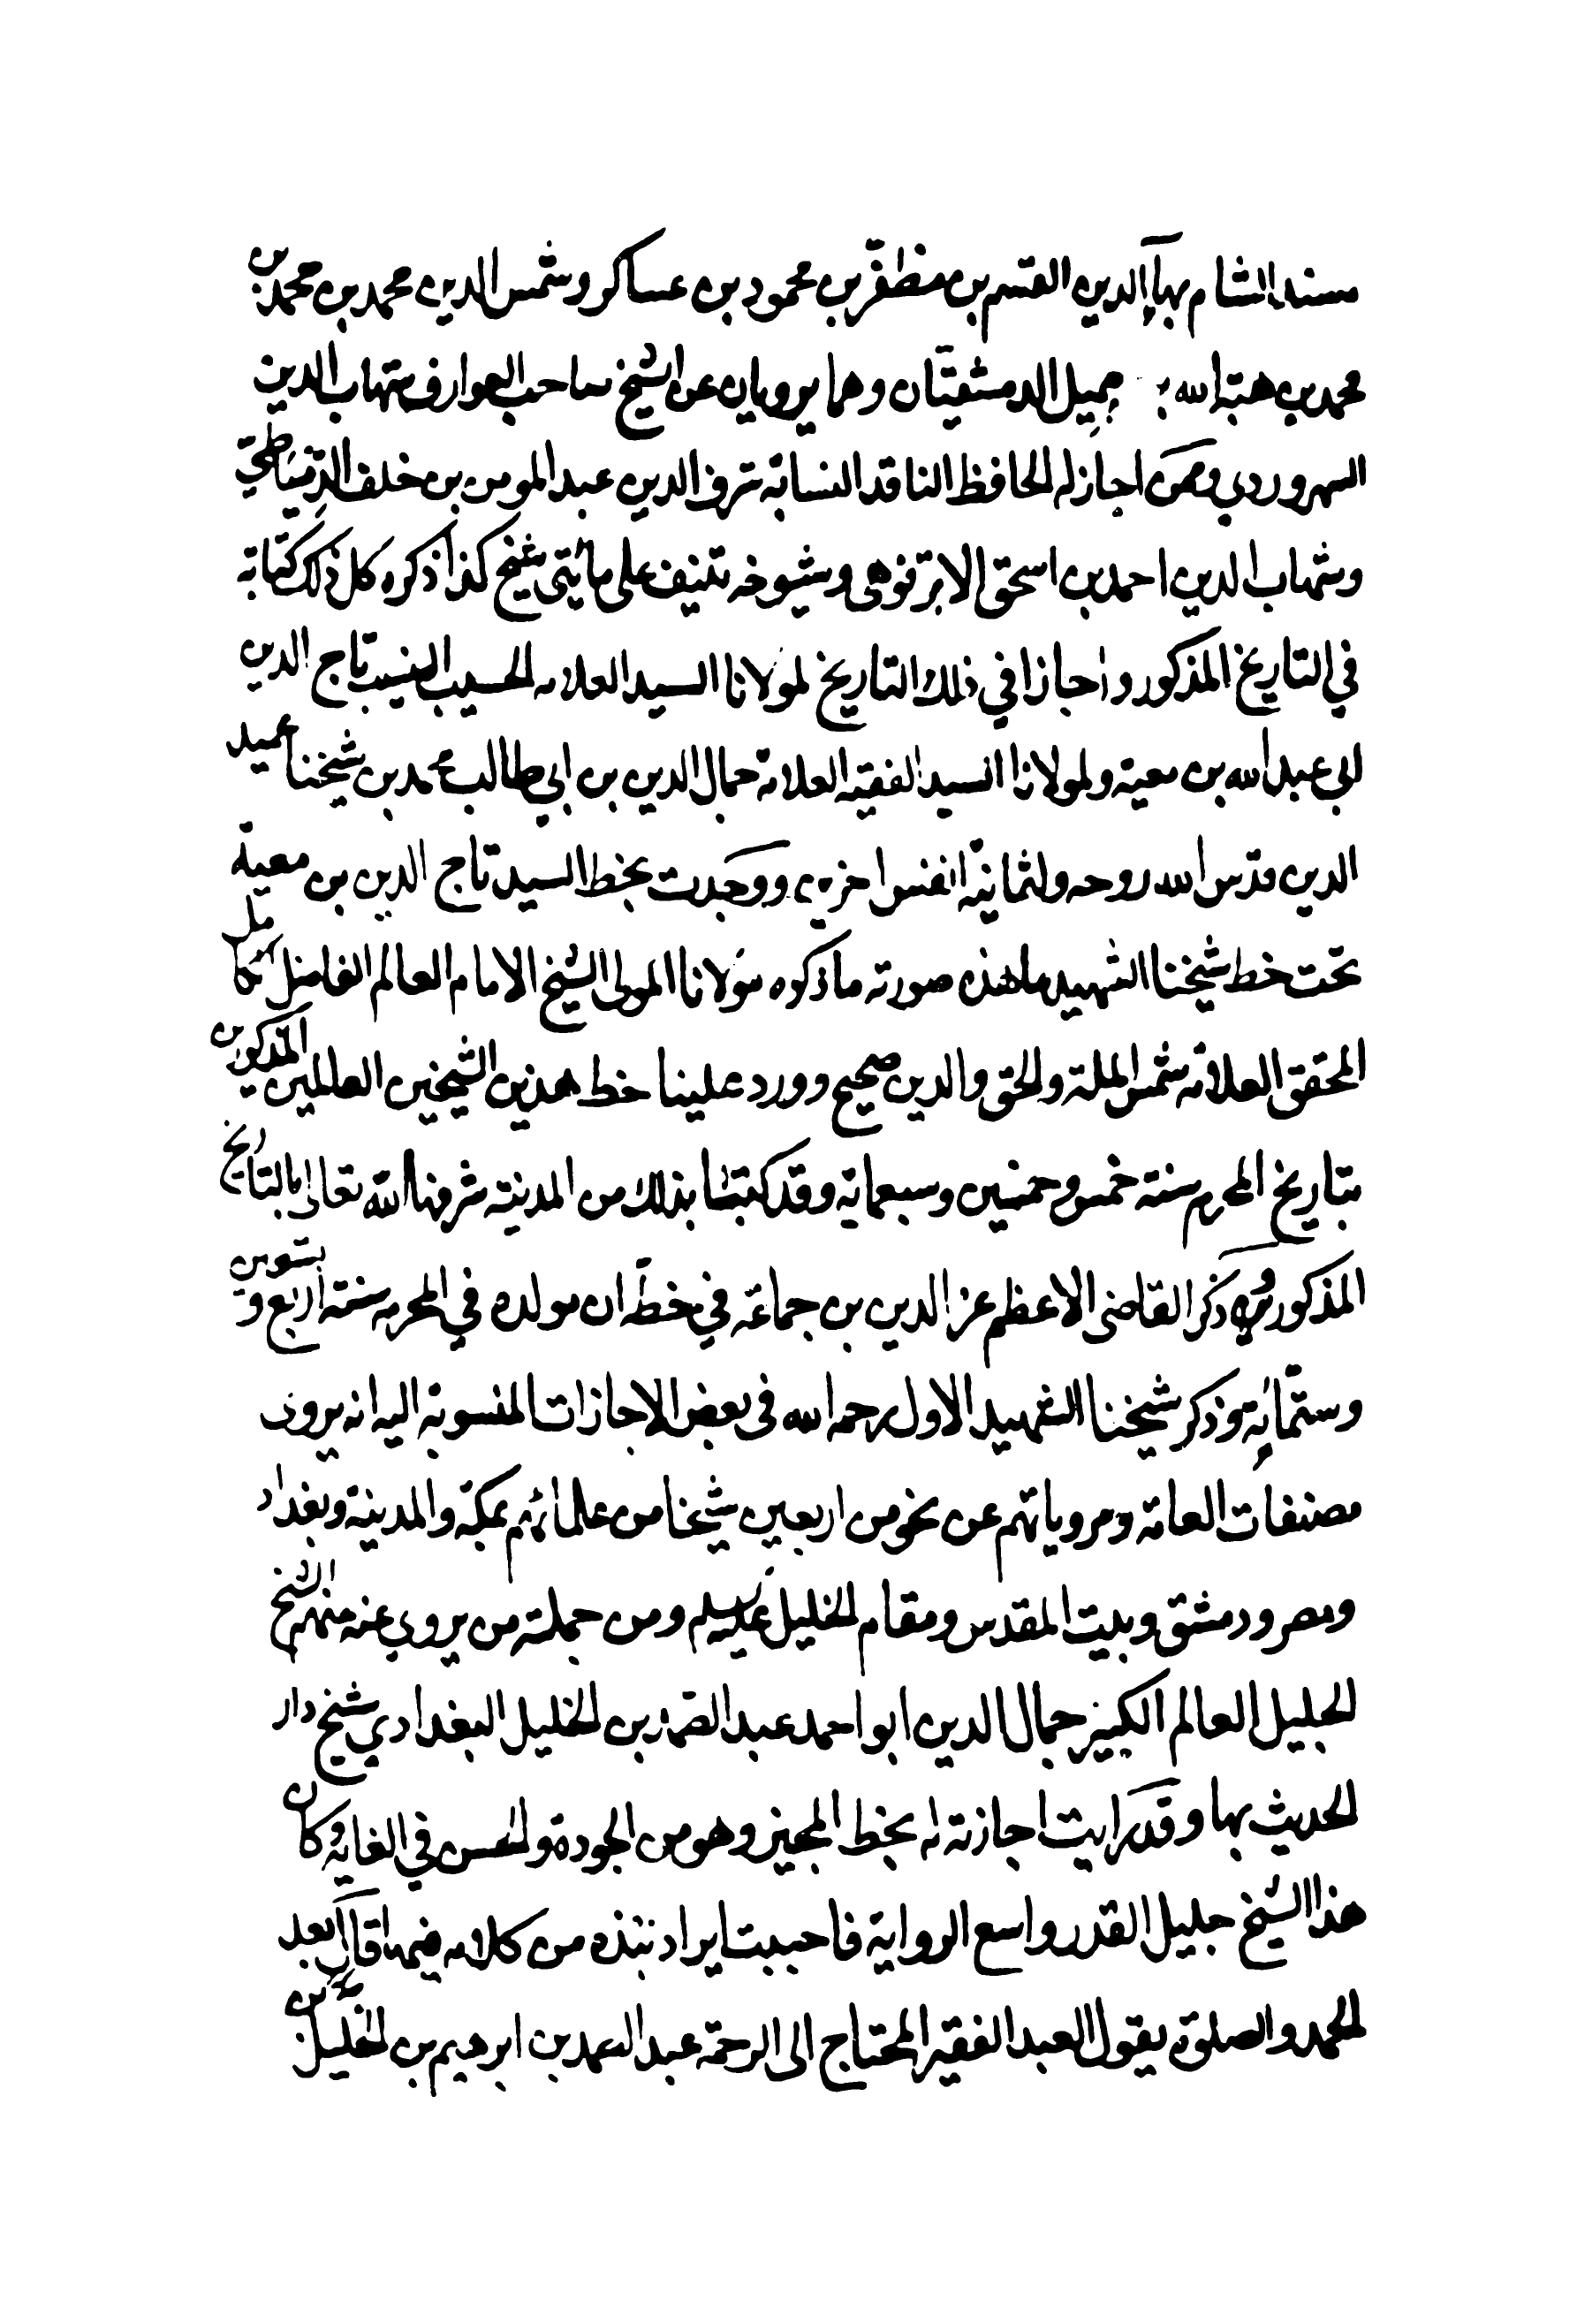 مسند الشام بهآء الدين القسم بن مظفر بن محمود بن عساكر وشمس الدين محمد بن محمد بن
محمد بن هبة الله بن جميل الدمشقيّان وهما يرويان عن الشيخ صاحب العوارف شهاب الدين
السهروردي وممن اجاز له الحافظ الناقد النسابة شرف الدين عبد المومن بن خلف الدمياطي
وشهاب الدين احمد بن اسحق الابرقوهي وشيوخه تنيف على مائتي شيخ كذا ذكره كل ذلك كتابة
في التاريخ المذكور واجازا في ذلك التاريخ لمولانا السيد العلامه الحسيب النسيب تاج الدين
ابي عبد الله بن معية ولمولانا السيد الفقيه العلامة جمال الدين بن ابي طالب محمد بن شيخنا عميد
الدين قدس الله روحه ولثمانية انفس اخرين ووجدت بخط السيد تاج الدين بن معية
تحت خط شيخنا الشهيد ما هذه صورته ما ذكره مولانا المولى الشيخ الامام العالم الفاضل الكامل
المحقق العلامة شمس الملة والحق والدين صحيح وورد علينا خط هذين الشيخين العالمين المذكورين
بتاريخ المحرم سنة خمس وخمسين وسبعماية وقد كتبا بذلك من المدينة شرفها الله تعالى بالتاريخ
المذكور وذكر القاضى الاعظم عز الدين بن جماعة في خطه ان مولده في المحرم سنة اربع وتسعين
وستمائة وذكر شيخنا الشهيد الاول رحمه الله فى بعض الاجازات المنسوبة اليه انه يروى
مصنفات العامة ومروياتهم عن نحو من اربعين شيخا من علمائهم بمكة والمدينة وبغداد
ومصر ودمشق وبيت المقدس ومقام الخليل عليه السلم ومن جملة من يروي عنه منهم الشيخ
الجليل العالم الكبير جمال الدين ابو احمد عبد الصمد بن الخليل البغدادي شيخ دار
الحديث بها وقد رايت اجازته له بخط المجيز وهو من الجودة والحسن في الغاية وكان
هذا الشيخ جليل القدر واسع الرواية فاحببت ايراد نبذه من كلامه فيها قال بعد
الحمد والصلوة يقول العبد الفقير المحتاج الى الرحمة عبد الصمد بن ابرهيم بن الخليل بن